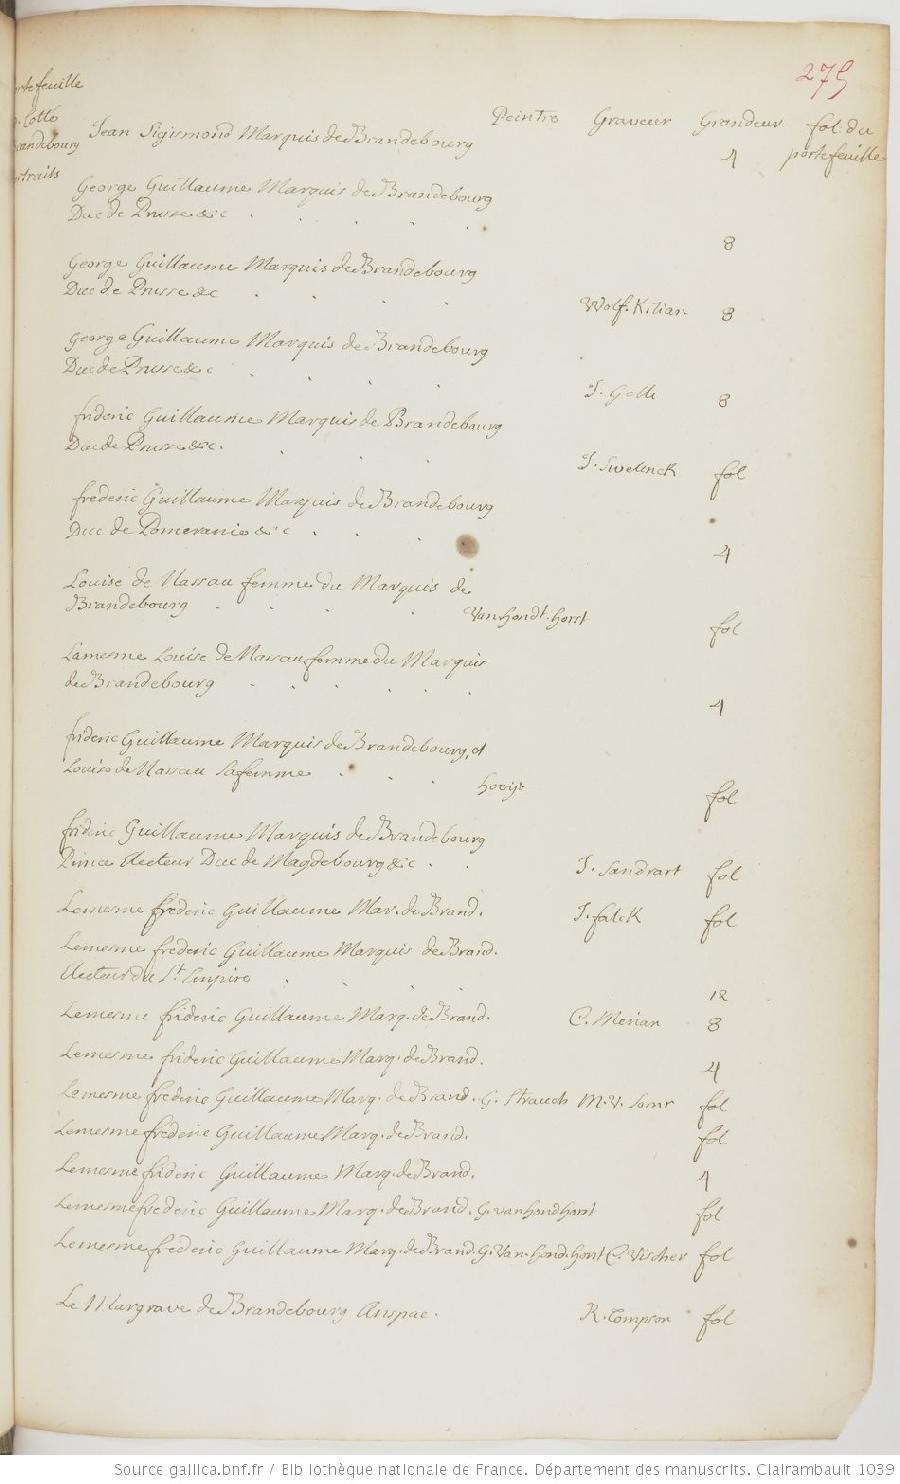 275
rtefeuille
cotté
randebourg
rtraits
Peintre Graveur Grandeur fol. du
portefeuille
Jean Sigismond Marquis de Brandebourg 4
George Guillaume Marquis de Brandebourg
Duc de Prusse &c . . . . 8
George Guillaume Marquis de Brandebourg
Duc de Prusse &c . . . . Wolf. Kilian 8
George Guillaume Marquis de Brandebourg
Duc de Prusse &c . . . . J. Gelle 8
frideric Guillaume Marquis de Brandebourg
Duc de Prusse &c. . . . J. Swelinck fol
frederic Guillaume Marquis de Brandebourg
Duc de Pomeranie &c . . . 4
Louise de Nassau femme du Marquis de
Brandebourg . . . . Van hondt.horst fol
Lamesme Louise de Nassau femme du Marquis
de Brandebourg . . . . . . 4
frideric Guillaume Marquis de Brandebourg, et
Louise de Nassau sa femme . . . fol
frideric Guillaume Marquis de Brandebourg
Prince Electeur Duc de Magdebourg &c . . J. Sandrart fol
Lemesme frederic Guillaume Mar. de Brand. J. falck fol
Lemesme frederic Guillaume Marquis de Brand.
Electeur du St. Empire . . . . 12
Lemesme frideric Guillaume Marq. de Brand. C. Merian 8
Lemesme frideric Guillaume Marq. de Brand. 4
Lemesme frederic Guillaume Marq. de Brand. G. Strauch M. V. Somr fol
Lemesme frederic Guillaume Marq. de Brand. fol
Lemesme frideric Guillaume Marq. de Brand. 4
Lemesme frederic Guillaume Marq. de Brand. G. van hondhorst fol
Lemesme frederic Guillaume Marq. de Brand. G. Van. hond. horst C. Vischer fol
Le Margrave de Brandebourg Anspac. R. Compson fol
Source gallica.bnf.fr / Bibliothèque nationale de France. Département des manuscrits. Clairambault 1039